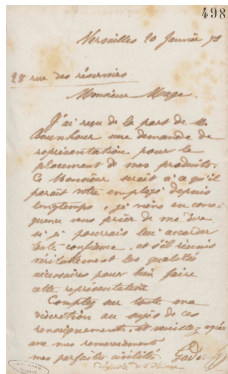 498
Versailles 10 Janvier 79
28 rue des réservoirs
Monsieur Mage
J'ai reçu de la part de M.
Bounhour une demande de
représentation pour le
placement de nos produits.
Ce Monsieur serait à ce qu'il
paraît votre employé depuis
longtemps, je viens en consé-
quence vous prier de me dire
si je pourrais lui accorder
toute confiance, et s'il réunit
véritablement les qualités
nécessaires pour bien faire
cette représentation.
Comptez sur toute ma
discrétion au sujet de ces
renseignements, et veuillez agréer
avec mes remerciements
mes parfaites civilités.